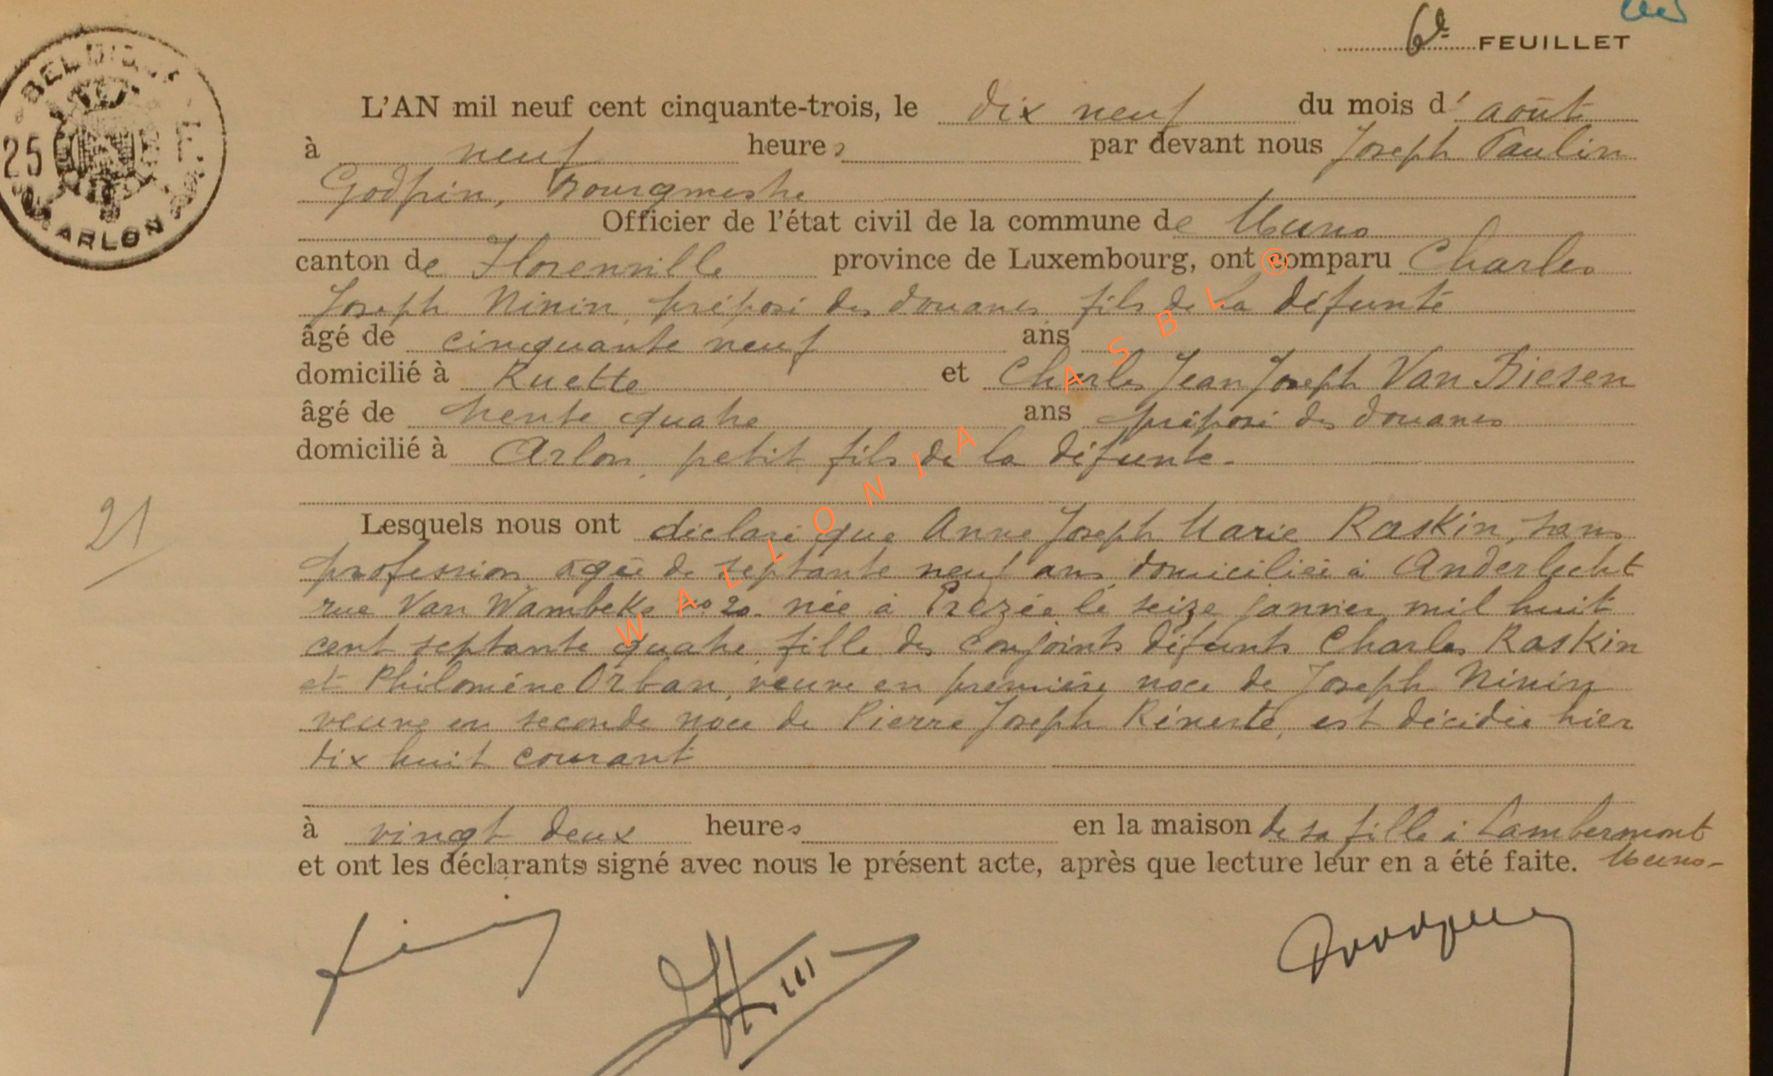 6e FEUILLET
BELGIQUE
25 F
ARLON
L'AN mil neuf cent cinquante-trois, le dix neuf du mois d' août
à neuf heures par devant nous Joseph Paulin
Godfrin, Bourgmestre
Officier de l'état civil de la commune de Muno
canton de Florenville province de Luxembourg, ont comparu Charles
Joseph Ninin, préposé des douanes, fils de la défunte
âgé de cinquante neuf ans
domicilié à Ruette et Charles Jean Joseph Van Biesen
âgé de trente quatre ans préposé des douanes
domicilié à Arlon, petit fils de la défunte.
21
Lesquels nous ont déclaré que Anne Joseph Marie Raskin, sans
profession, agée de septante neuf ans, domiciliée à Anderlecht
rue Van Wambeke no 20. née à Erezée le seize janvier mil huit
cent septante quatre, fille des conjoints défunts Charles Raskin
et Philomène Orban, veuve en première noce de Joseph Ninin
veuve en seconde noce de Pierre Joseph, est décédée hier
dix huit courant
à vingt deux heures en la maison de sa fille à Lambermont
et ont les déclarants signé avec nous le présent acte, après que lecture leur en a été faite. Muno-
WALLONIA ASBL ®